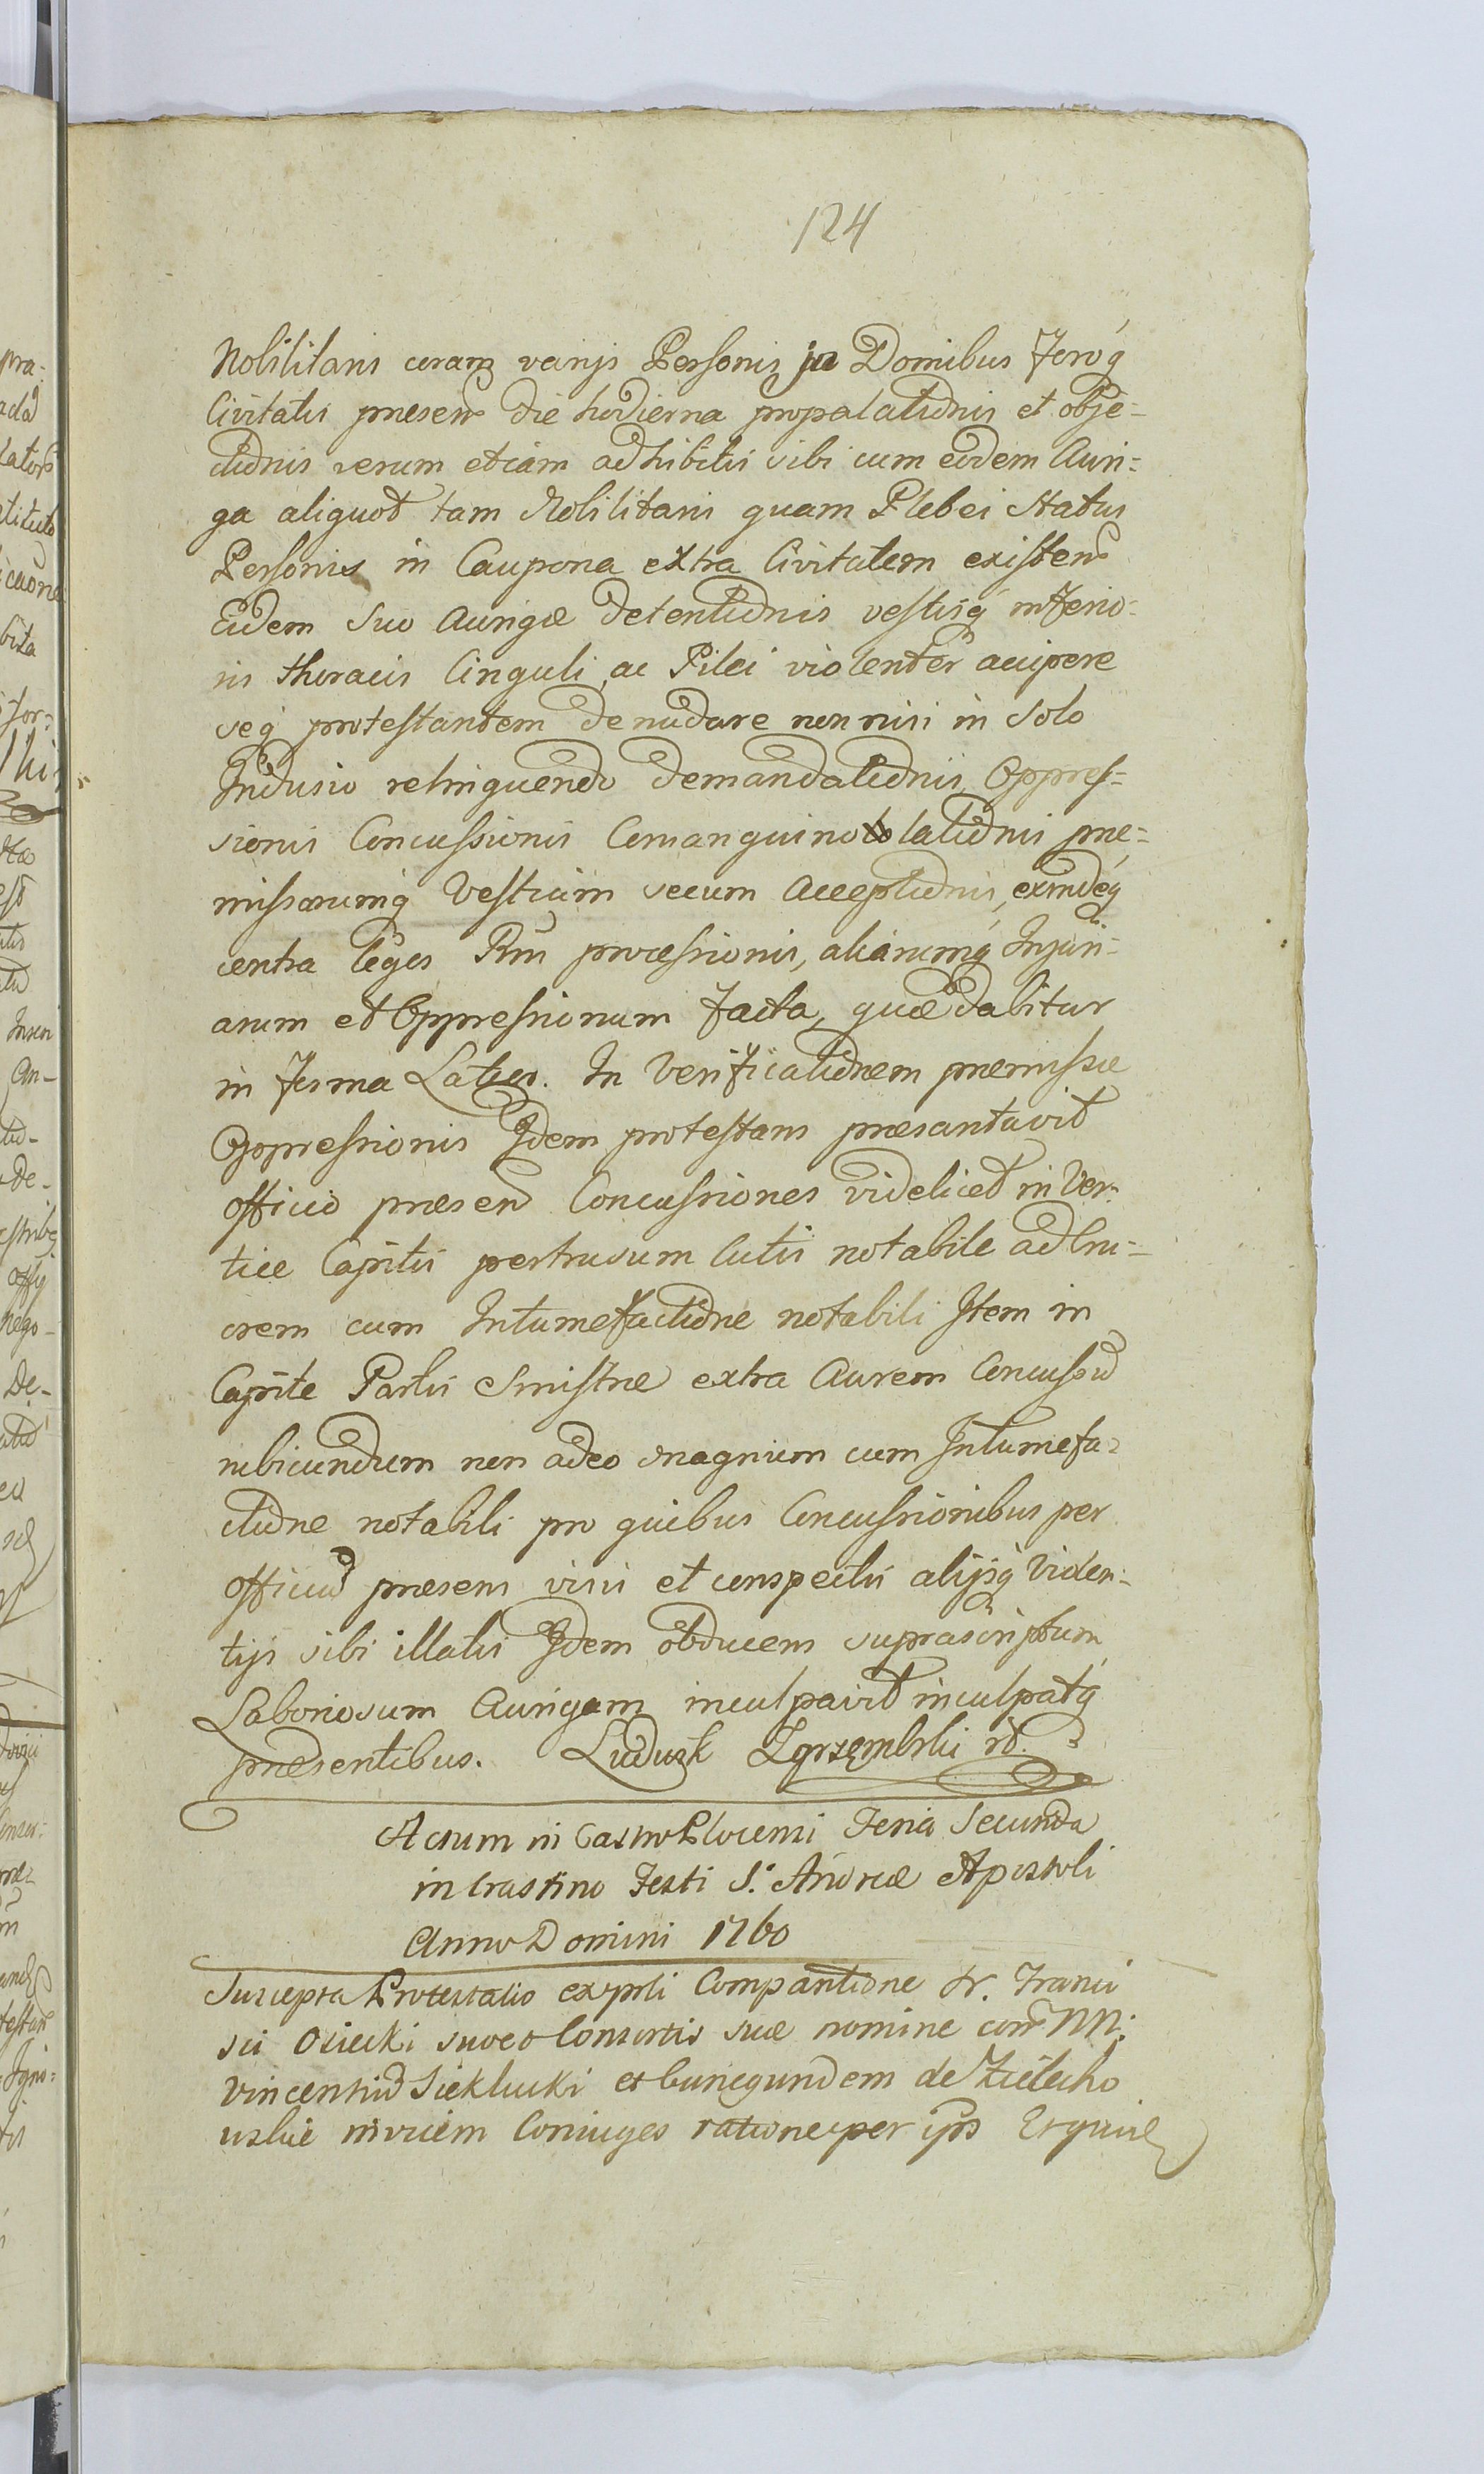 124
Nobilitaris coram varijs Personis in Domibus Foroq́
Civitatis praesen die hodierna propalationis et obje-
ctionis verum etiam adhibitis sibi cum eodem Auri-
ga aliquot tam Nobilitaris quam Plebei Status
Personis in Caupona extra Civitatem existen
Eidem suo Aurigae detentionis vestisq́ inferio-
ris thoracis Cinguli ac Pilei violenter accipere
seq́ protestantem denudare non nisi in solo
Indusio relinquendo demandationis Oppres-
sionis Concussionis Consanguinolationis prae-
missarumq́ Vestium secum Acceptionis, exindeq́
contra leges Rni processionis, aliarumq́ Injuri-
arum et Oppressionum facta, quae dabitur
in forma Latior. In Verificationem praemissae
Oppressionis Idem protestans praesantavit
officio praesen Concussiones videlicet in Ver-
tice Capitis pertrusum Cutis notabile ad Cru-
orem cum Intumefactione notabili Item in
Capite Partis Sinistrae extra Aurem Concussu
rubicundum non adeo magnum cum Intumefa-
ctione notabili pro quibus Concussionibus per
officiu praesens visis et conspectis alijsq́ Viden-
tijs sibi illatis Idem obducens suprascriptum
Laboriosum Aurigam inculpavit inculpatq́
praesentibus. Ludwik Zgrzęmbski
Actum in Castro Plocensi Feria Secunda
in Crastino Festi S. Andreae Apostoli
Anno Domini 1760
Suscepta Protestatio ex prli Comparitione Franci
sci Osiecki suo et Consortis suae nomine con NN:
Vincentiu Sieklucki et Cunegundem de Zielecho
uskie invicem Coniuges ratione per ips